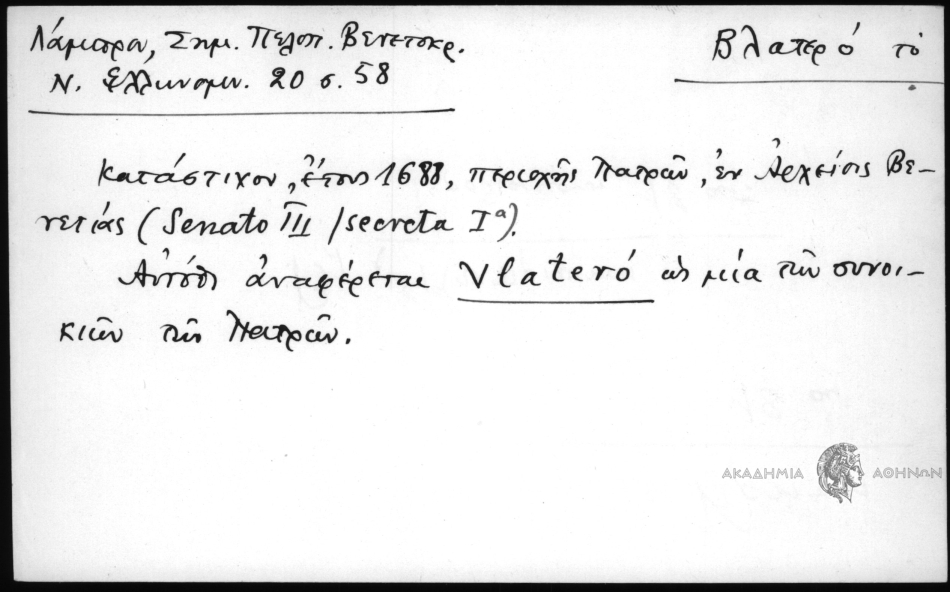 Λάμπρου, Σημ. Πελοπ. Βενετοκρ.
Ν. Ἑλληνομν. 20 σ. 58
Βλατερό τό
Κατάστιχον, ἔτους 1688, περιοχῆς Πατρῶν, ἐν Ἀρχείοις Βε-
νετίας (Senato III /secreta Iª).
Αὐτόθι ἀναφέρεται Vlateró ὡς μία τῶν συνοι-
κιῶν τῶν Πατρῶν.
ΑΚΑΔΗΜΙΑ ΑΘΗΝΩΝ